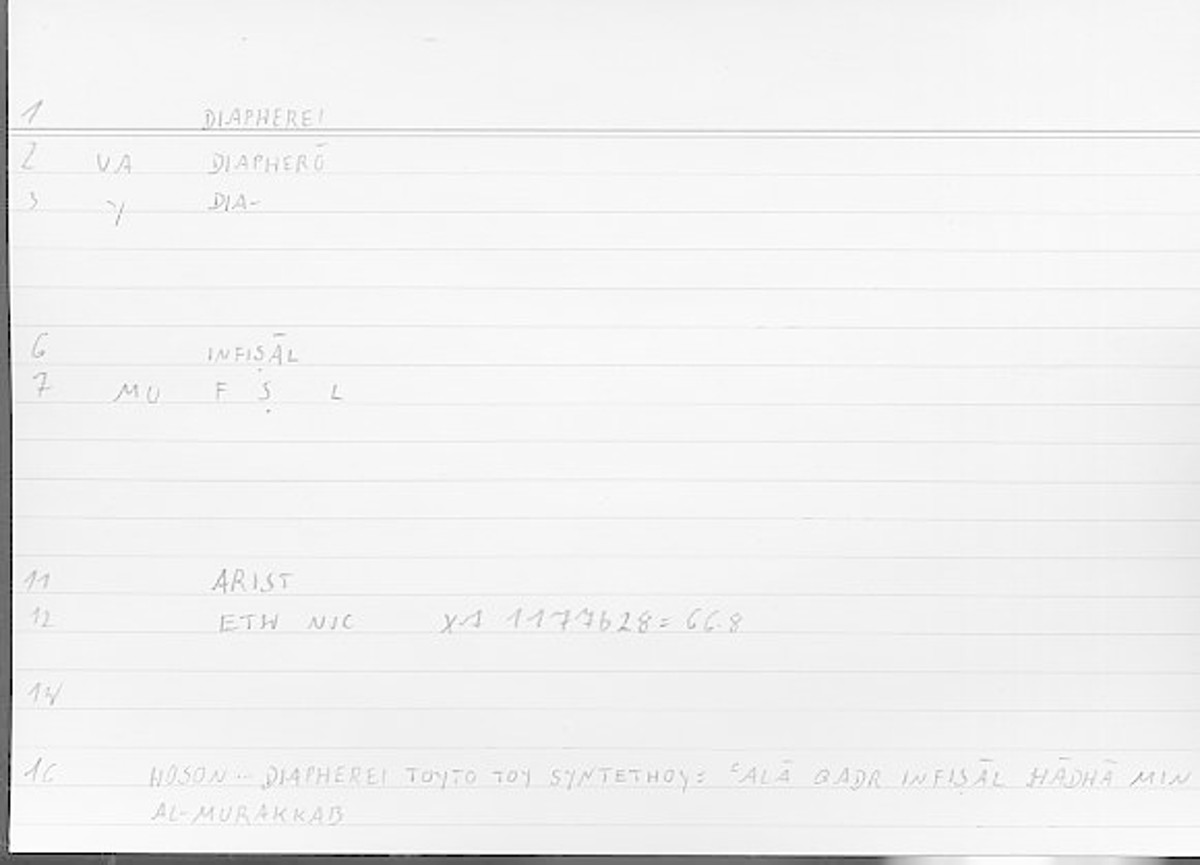 1 DIAPHEREI
2 VA DIAPHERŌ
3 Y DIA-
6 INFIṢĀL
7 MU F Ṣ L
11 ARIST
12 ETH NIC X1 1177b28= 66.8
14
16 HOSON... DIAPHEREI TOYTO TOY SYNTETHOY: ʿALĀ QADR INFIṢĀL HĀDHĀ MIN
AL-MURAKKAB